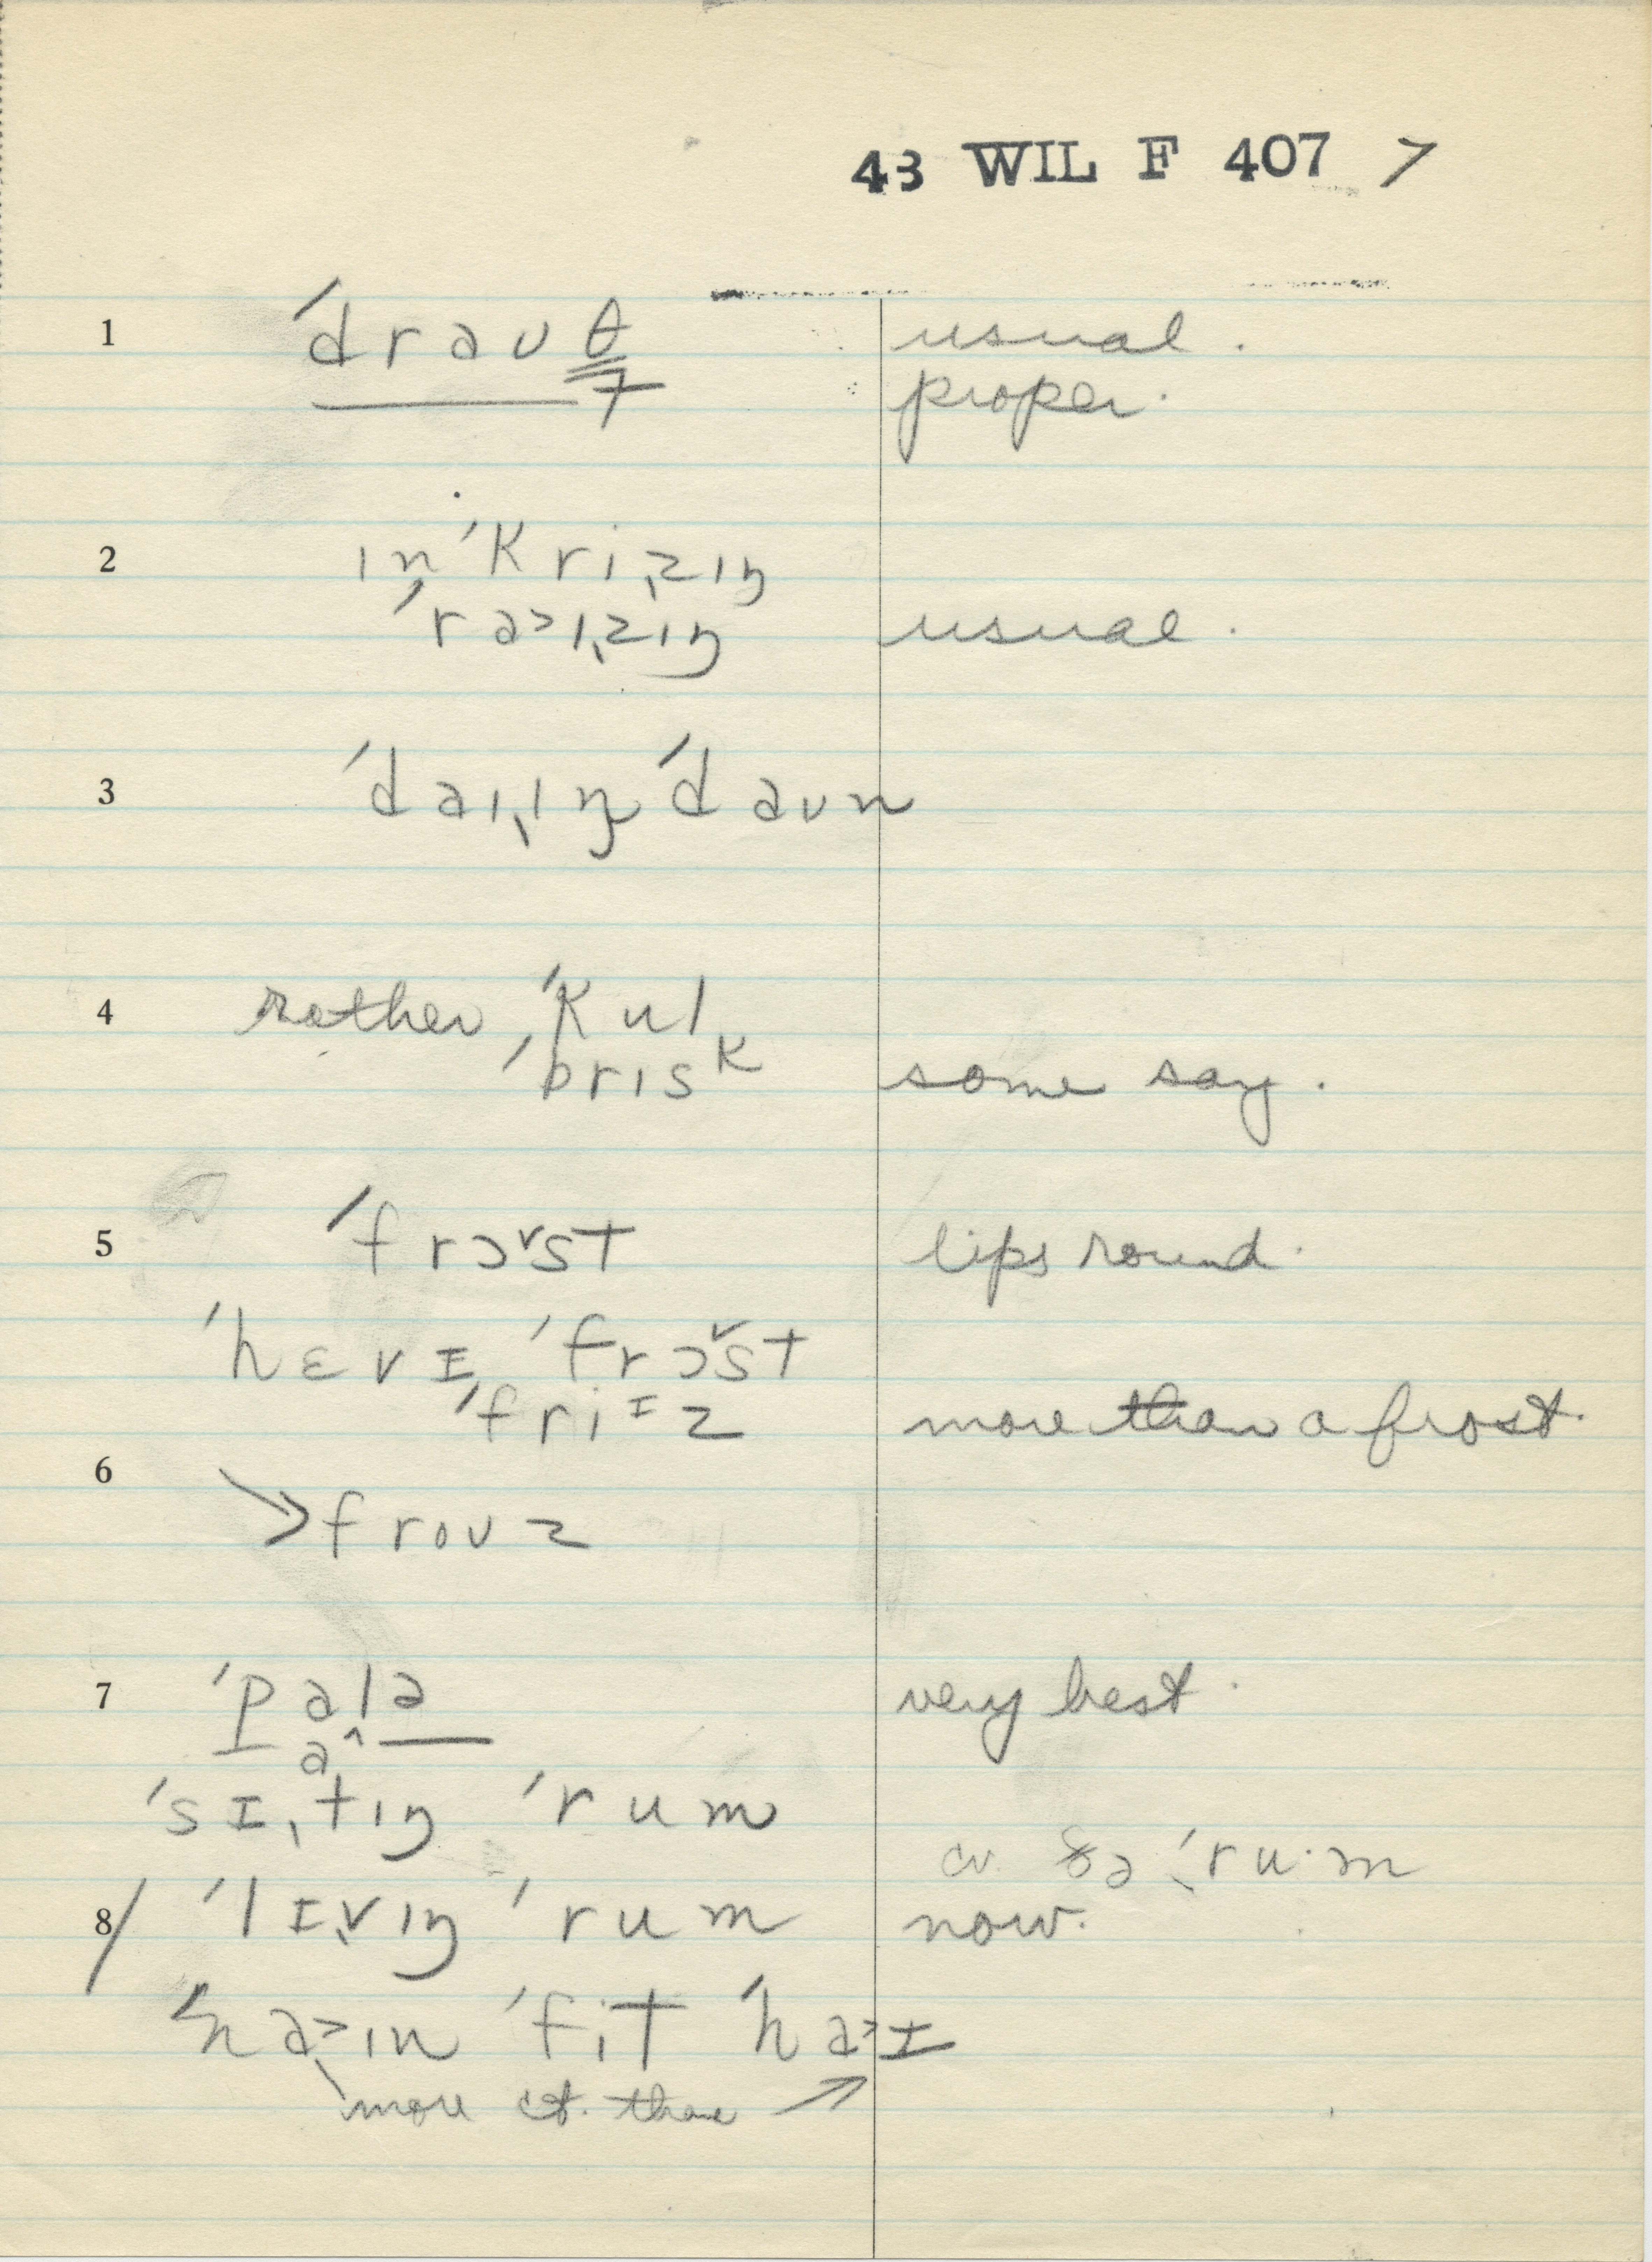 43 WIL F 407 7
1 ˈdraʊθ usual.
7 proper.
2 ɪnˈkriˌzɪŋ
ˈra˃ɪˌzɪŋ usual.
3 ˈdaɪˌɪŋ ˈdaʊn
4 rather ˈkul
ˈbrɪsk some say.
5 ˈfrɔ˅st lips round.
ˈhɛvɪ ˈfrɔ˅st
ˈfriɪz more than a frost.
6 → froʊz
7 ˈpalə very best.
a˄
ˈsɪˌtɪŋ ˈrum
cv. ðə ˈru·m
8/ ˈlɪˌvɪŋ ˈrum now.
ˈna˃ɪn ˈfit ˈha˃ɪ
more ct. than →